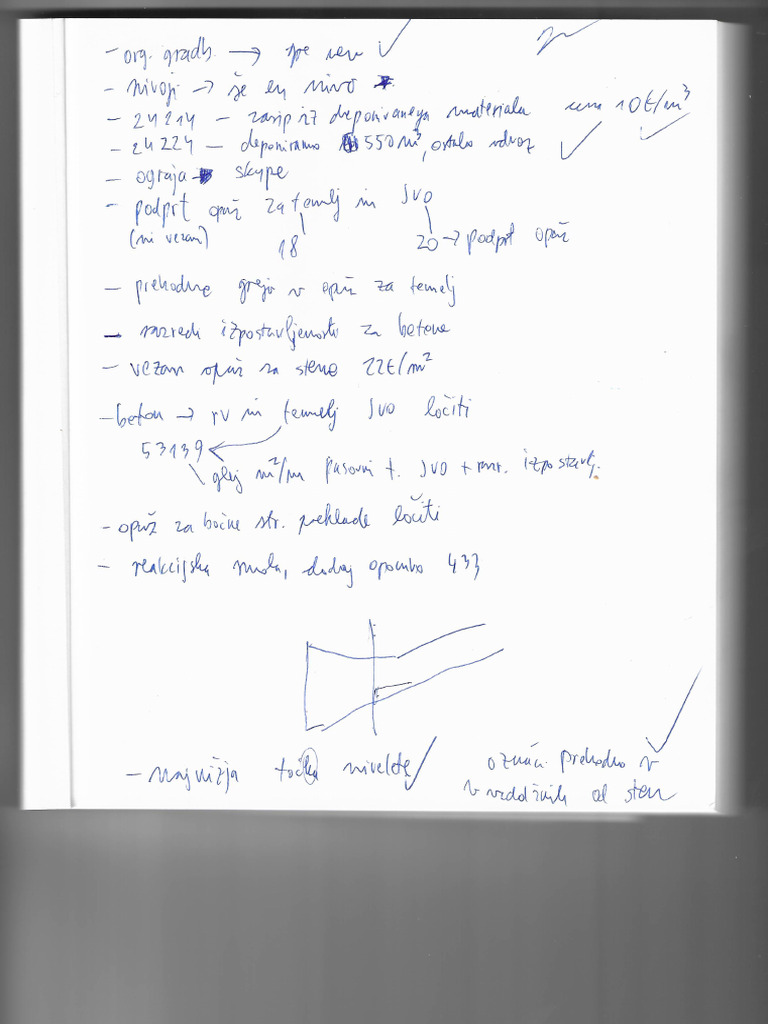 - org. gradb. →
- nivoji → še en nivo
- 24214 - zasip iz deponiranega materiala cena 10€/m³
- 24224 - deponiramo 550 m³, ostalo odvoz
- ograja skype
- podprt opaž za temelj in JVO
(ni vezan) 18 20 → podprt opaž
- prehodne grejo v opaž za temelj
- razredi izpostavljenosti za betone
- vezan opaž za stene 22€/m²
- beton → rv in temelj JVO ločiti
53139
glej m²/m pasovni t. JVO + raz. izpostavlj.
- opaž za bočne str. preklade ločiti
- reakcijska smola, dodaj opombo 433
- najnižja točka nivelete
označi prehodno v
v vzdolžnih od sten